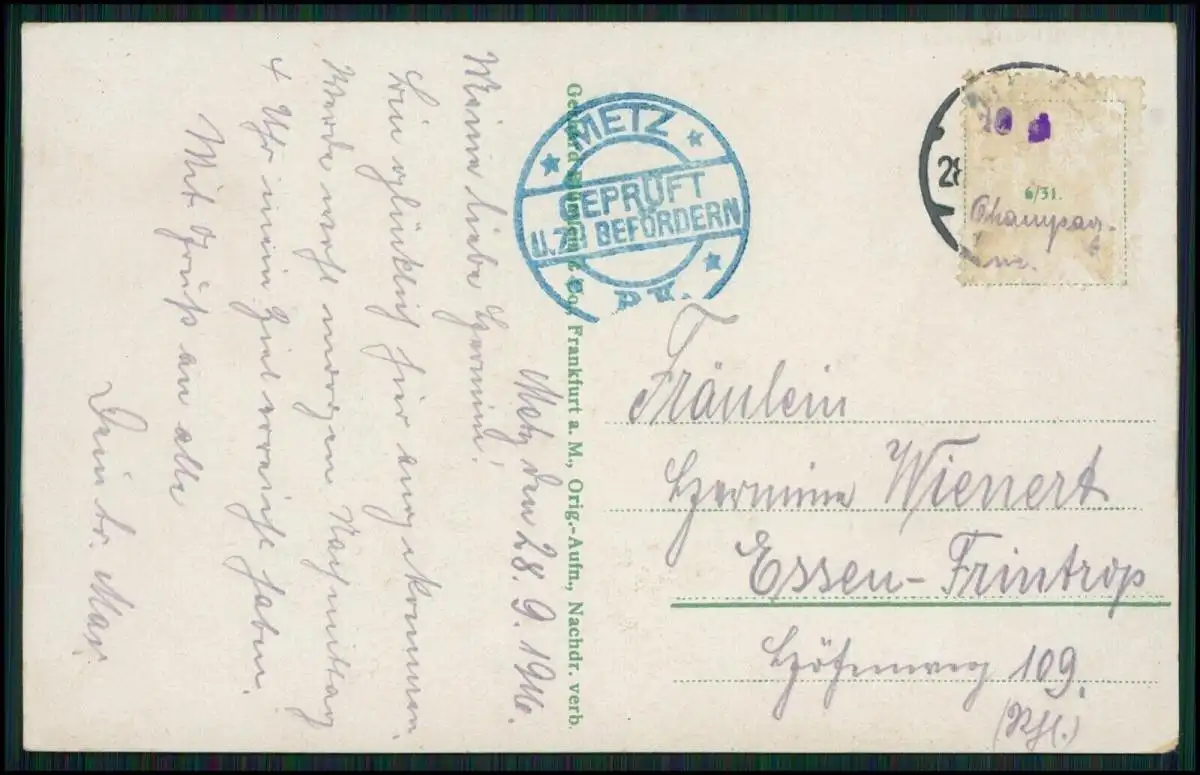 Metz den 28.9.1916.
Meine liebe Hermine!
Bin glücklich hier angekommen.
Werde wohl morgen Nachmittag
4 Uhr mein Ziel erreicht haben.
Mit Gruß an alle
Dein tr. Max.
Frankfurt a. M., Orig.-Aufn., Nachdr. verb.
METZ
GEPRÜFT
U. ZU BEFÖRDERN
P.K.
28
10
6/31.
Fräulein
Hermine Wienert
Essen-Frintrop
Höhenweg 109.
(Rhl.)